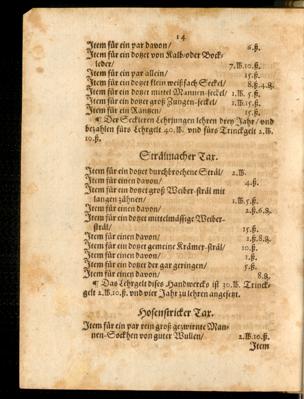 14
Item für ein par davon/ 6.ß.
Item für ein dotzet von Kalb-oder Bock-
leder/ 7.℔.10.ß.
Item für ein par allein/ 15.ß.
Item für ein dotzet klein weißfach Seckel/ 8.ß.4.₰.
Item für ein dotzet mittel Mannen-seckel/ 1.℔.5.ß.
Item für ein dotzet groß Zungen-seckel/ 1.℔.15.ß.
Item für ein Rantzen/ 15.ß.
¶ Der Seckleren Lehrjungen lehren drey Jahr/ und
bezahlen fürs Lehrgelt 40.℔. und fürs Trinckgelt 2.℔.
10.ß.
Strälmacher Tax.
Item für ein dotzet durchbrochene Sträl/ 2.℔.
Item für einen davon/ 4.ß.
Item für ein dotzet groß Weiber-sträl mit
langen zähnen/ 1.℔.5.ß.
Item für einen davon/ 2.ß.6.₰.
Item für ein dotzet mittelmässige Weiber-
sträl/ 15.ß.
Item für einen davon/ 1.ß.8.₰.
Item für ein dotzet gemeine Krämer-sträl/ 10.ß.
Item für einen davon/ 1.ß.
Item für ein dotzet der gar geringen/ 5.ß.
Item für einen davon/ 8.₰.
¶ Das Lehrgelt dises Handwercks ist 30.℔. Trinck-
gelt 2.℔.10.ß. und vier Jahr zu lehren angesetzt.
Hosenstricker Tax.
Item für ein par rein groß gezwirnte Man-
nen-Sockhen von guter Wullen/ 2.℔.10.ß.
Item